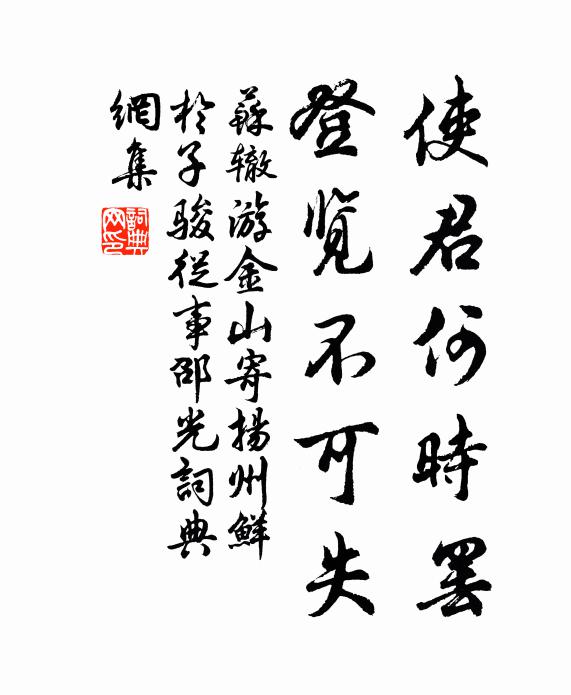 使君何時罷
登览不可失
蘇辙游金山寄揚州鮮
於子駿從事邵光詞典
網集
詞典
网印